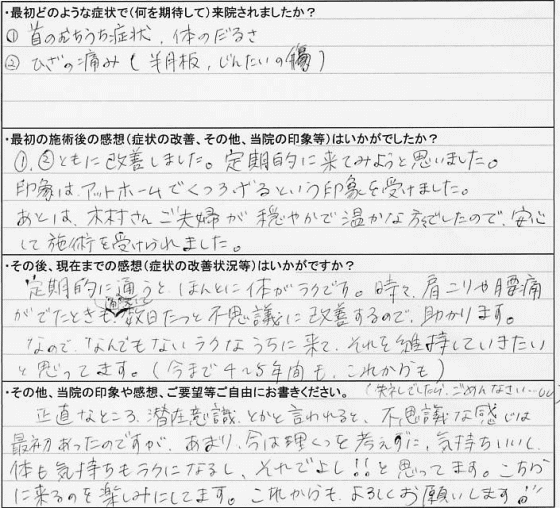 ・最初どのような症状で(何を期待して)来院されましたか？
① 首のむちうち症状、体のだるさ
② ひざの痛み(半月板，じんたいの傷)
・最初の施術後の感想(症状の改善、その他、当院の印象等)はいかがでしたか？
①、②ともに改善しました。定期的に来てみようと思いました。
印象は、アットホームでくつろげるという印象を受けました。
あとは、木村さんご夫婦が穏やかで温かな方でしたので、安心
して施術を受けられました。
・その後、現在までの感想(症状の改善状況等)はいかがですか？
定期的に通うと、ほんとに体がラクです。時々、肩こりや腰痛
がでたときも、数日たつと不思議に改善するので、助かります。
なので、なんでもないラクなうちに来て、それを維持していきたい
と思ってます。(今まで4～5年間も、これからも)
・その他、当院の印象や感想、ご要望等ご自由にお書きください。
(失礼でしたら、ごめんなさい…
正直なところ、潜在意識、とかと言われると、不思議な感じは
最初あったのですが、あまり、今は理くつを考えずに、気持ちいいし、
体も気持ちもラクになるし、それでよし!!と思ってます。こちら
に来るのを楽しみにしてます。これからも、よろしくお願いします!!